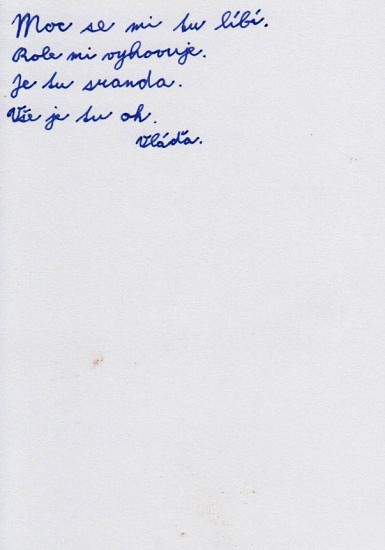 Moc se mi tu líbí.
Role mi vyhovuje.
Je tu sranda.
Vše je tu ok.
Vláďa.